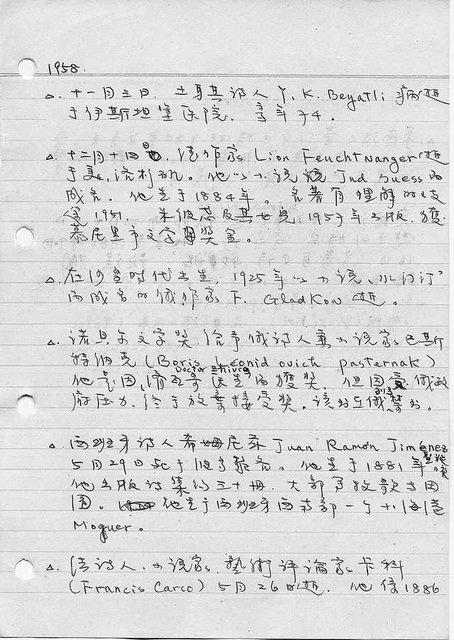 1958.
△. 十一月三日. 土耳其詩人 Y. K. Beyatli 病逝
于伊斯坦堡医院. 享年74.
△. 十二月十四日, 德作家 Lion Feuchtwanger 逝
于美, 洛杉矶。他以小說 Jud Suess 而
成名. 他生于1884年. 名著有
1951. 1957年出版. 獲
慕尼黑市文学奬金。
△. 在沙皇时代出生 1925年以小说,
而成名的俄作家 F. Gladkow 逝。
△. 諾貝尔文学奖 给予俄诗人兼小说家巴斯
特纳克 (Boris Leonid ovich pasternak)
他是因 Doctor Zhivago 而獲奖. 但因俄政
府压力终于放棄接受奖. 该书在俄禁书.
△. 西班牙诗人希梅尼乘 Juan Ramón Jiménez
5月29日死于 他生于1881年
他出版诗集约三十冊. 大部写牧歌与田
园。 他生于西班牙西南部一个小海港
Moguer。
△. 法诗人. 小说家. 藝術評論家 卡科
(Francis Carco) 5月26日逝. 他係1886